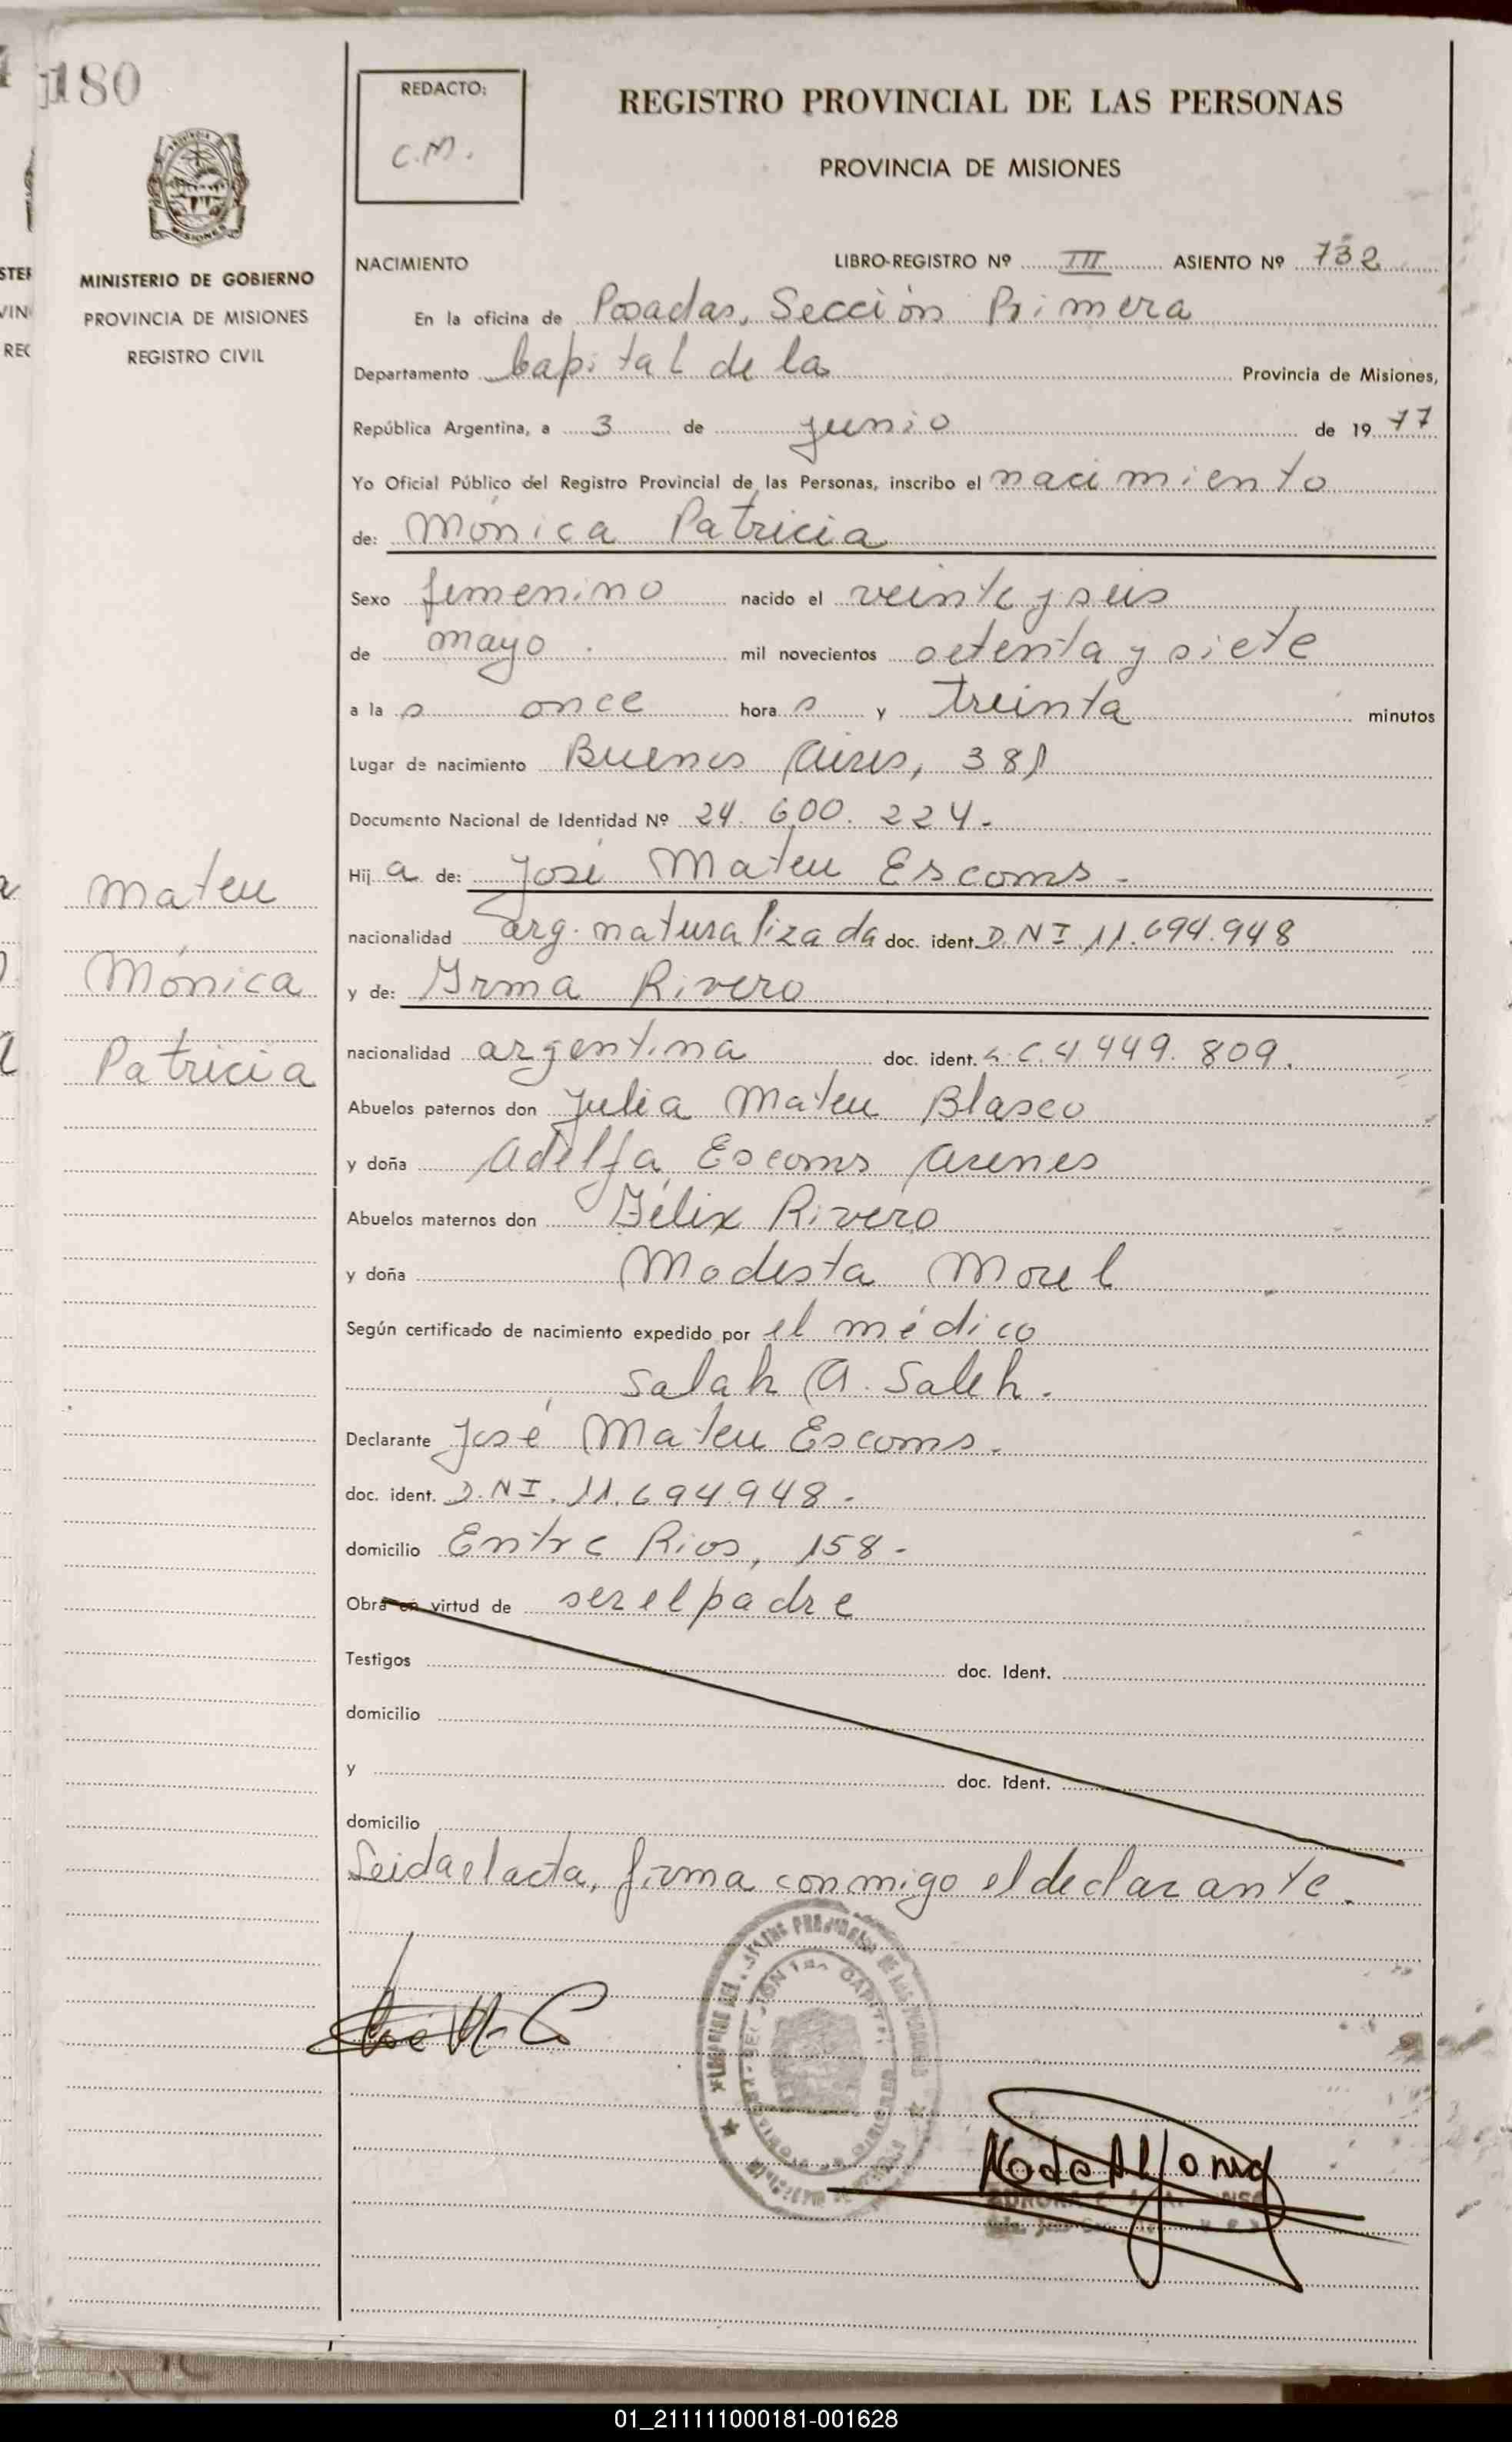 180
REDACTO:
C.M.
REGISTRO PROVINCIAL DE LAS PERSONAS
PROVINCIA DE MISIONES
MISIONES
MINISTERIO DE GOBIERNO
PROVINCIA DE MISIONES
REGISTRO CIVIL
NACIMIENTO LIBRO-REGISTRO Nº III ASIENTO Nº 732
En la oficina de Posadas, Sección Primera
Departamento Capital de la Provincia de Misiones,
República Argentina, a 3 de junio de 19 77
Yo Oficial Público del Registro Provincial de las Personas, inscribo el nacimiento
de: Mónica Patricia
Sexo femenino nacido el veinte y seis
de mayo mil novecientos setenta y siete
a la s once hora s y treinta minutos
Lugar de nacimiento Buenos Aires, 381
Documento Nacional de Identidad Nº 24.600.224.-
Hij a de: José Mateu Escoms -
nacionalidad arg. naturalizada doc. ident. D.N.I. 11.694.948
y de: Irma Rivero
nacionalidad argentina doc. ident. L.C. 4.449.809.
Abuelos paternos don Julia Mateu Blasco
y doña Adelfa Escoms Arenes
Abuelos maternos don Félix Rivero
y doña Modesta Morel
Según certificado de nacimiento expedido por el médico
Salah A. Saleh.
Declarante José Mateu Escoms.
doc. ident. D.N.I. 11.694.948.-
domicilio Entre Rios, 158.-
Obra en virtud de ser el padre
Testigos doc. Ident.
domicilio
y doc. Ident.
domicilio
Leida el acta, firma conmigo el declarante.
Mateu
Mónica
Patricia
01_211111000181-001628